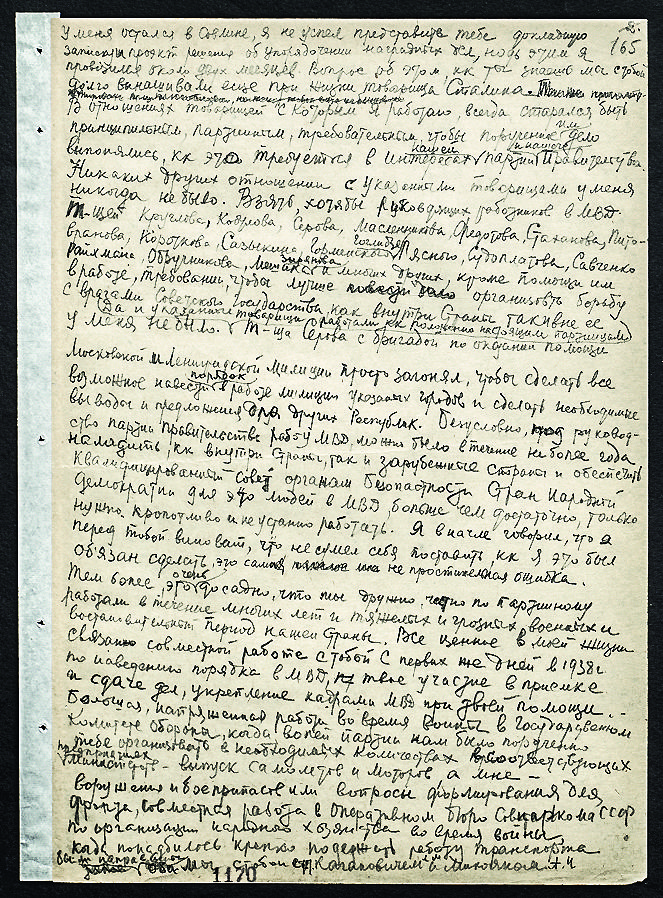 165
У меня остался в Совмине, я не успел представить тебе докладную
записку и проект решения об упорядочении наградных дел, над этим я
провозился около двух месяцев. Вопрос об этом, кк ты знаешь мы с тобой
долго вынашивали еще при жизни товарища Сталина.
В отношениях товарищей с которым я работаю, всегда старался быть
принципиальным, партийным, требовательным, чтобы порученное им дело
выполнялись, кк это требуется в интересах нашей партии и нашего Правительства.
Никаких других отношении с указанними товарищами у меня
никогда не было. Взять хотябы руководящих работников в МВД.
Т-щей Круглова, Кобулова, Серова, Масленникова, Федотова, Стаханова, Пито-
вранова, Короткова, Сазыкина, Горлинского, Гоглидзе, Рясного, Судоплатова, Савченко
Райхмана, Обручникова, Мешика, Зырянова и многих других, кроме помощи им
в работе, требовании, чтобы лучше организовть борьбу
с врагами Советского государства, как внутри Страны так и вне ее
у меня не было. Да и указанние товарищи работали кк полагается настоящим партийцам.
Т-ща Серова с бригадой по оказании помощи
Московской и Ленинградской милиции просто загонял, чтобы сделать все
возможное навести порядок в работе милиции указаных городов и сделать необходимые
выводы и предложения для других Республик. Безусловно, под руковод-
ство партии и Правительства работу МВД, можно было в течение не более года
наладить, кк внутри страны, так и зарубежные страны и обеспечить
квалифицированнии совет органам безопастности Стран Народной
демократии для этого людей в МВД, больше чем достаточно, только
нужно кропотливо и неустанно работать. Я вначале говорил, что я
перед тобой виноват, что не сумел себя поставить, кк я это был
обязан сделать, это самая непростительная ошибка.
Тем более, это очень досадно, что мы дружно, честно по партииному
работали в течение многих лет и тяжелых и грозных, военных и
востановительной период нашей Страны. Все ценное в моей жизни
связано совместной работе с тобой с первых же дней в 1938г
по наведению порядка в МВД, твое участие в приемке
и сдаче дел, укрепление кадрами МВД при твоей помощи.
Большая, напряженная работа во время воины в Государственом
Комитете Обороны, когда волей партии нам было поручено
тебе организовать в необходимых количествах в соответствующих
предприятиях Министерств - випуск самолетов и моторов а мне -
воружения и боеприпасов или вопросы формирования для
фронта, совместная работа в Оперативном бюро Совнаркома СССР
по организации народного хозяиства во время воины,
когда понадобилось крепко подержать работу транспорта
мы с тобой с Кагановичем и Микояном А.И
1170